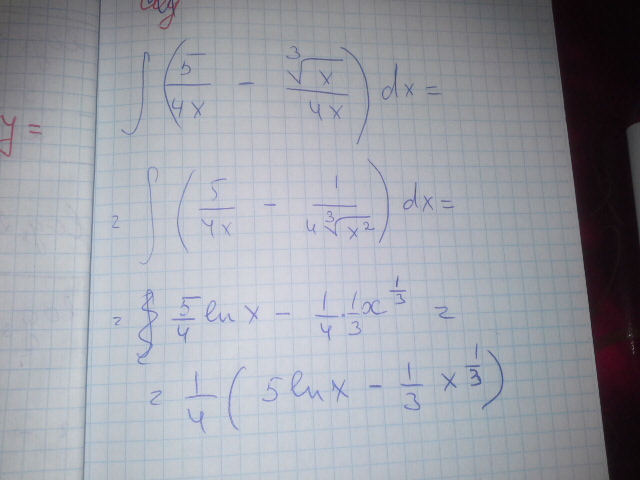 y =
∫ (5/4x - ∛x/4x) dx =
= ∫ (5/4x - 1/4∛x²) dx =
= 5/4 ln x - 1/4 · 1/3 x^1/3 =
= 1/4 (5 ln x - 1/3 x^1/3)